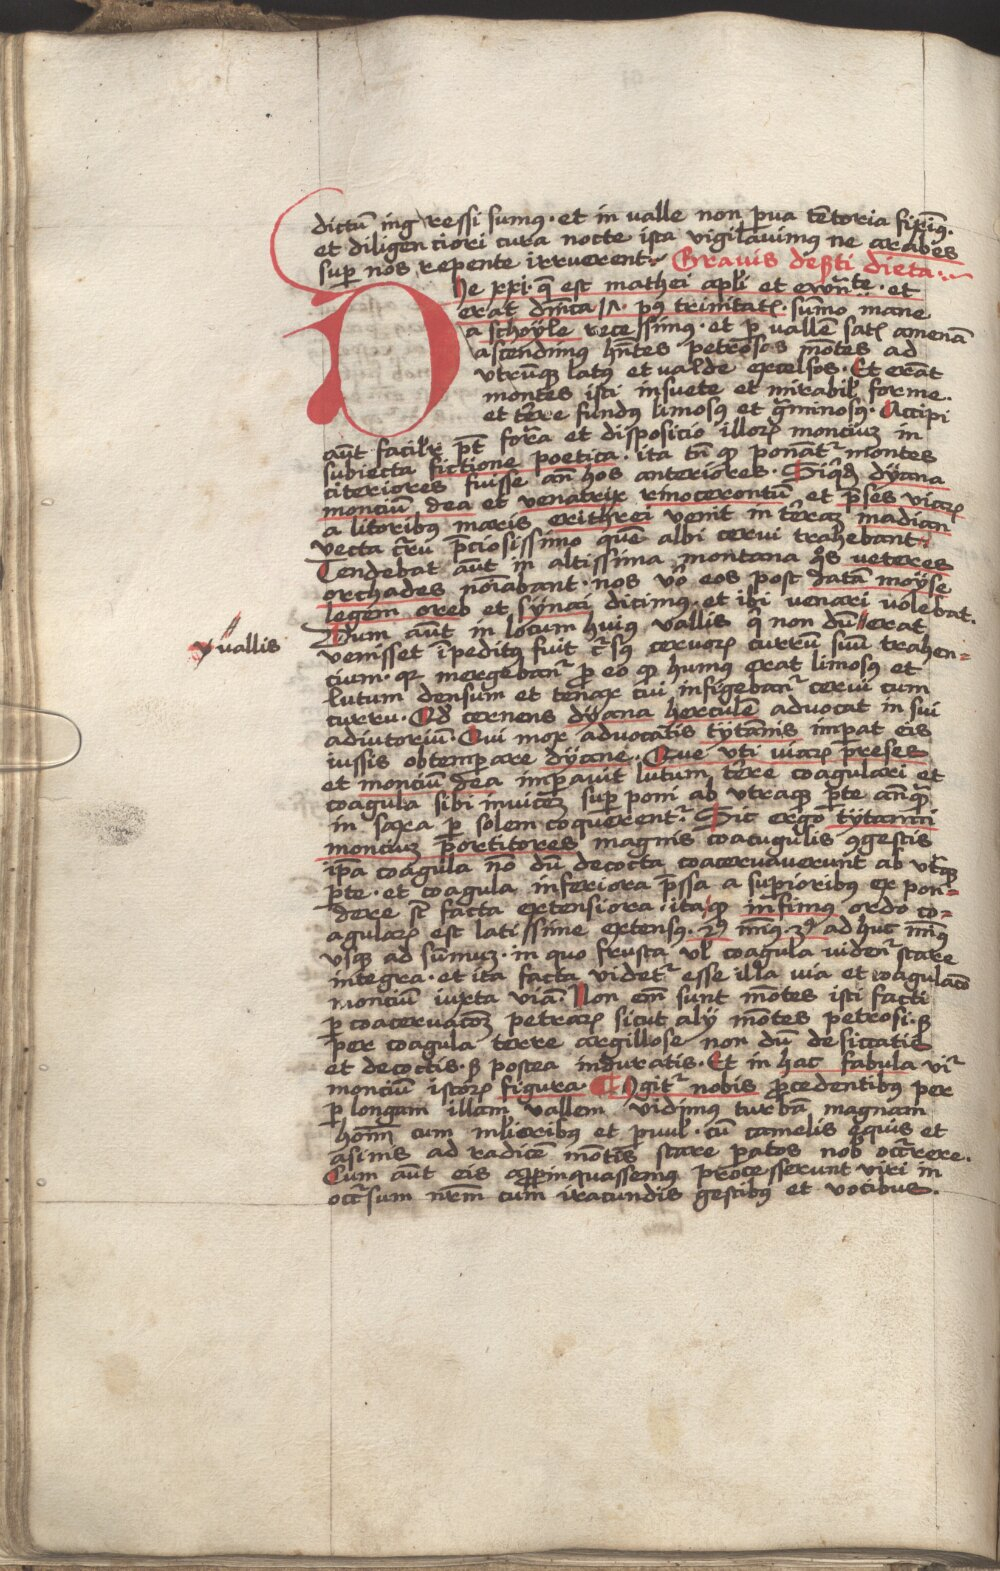 dictū ingressi sumꝰ · et in valle non p̱ua tētoria fiximꝰ.
et diligenciori cura nocte ista vigilauimus ne arabes
suꝑ nos repente irruerent · Grauis deẞti dieta ·
Die xxi · q̄ est mathei apl̄i et ewn̄te · et
erat dn̄ica · pꝰ trinitatꝫ · sūmo mane
a schoyle recessimꝰ · et ꝑ vallē satꝫ amenā
ascendimꝰ hn̄tes petrosos mōtes ad
vtrūqꝫ latꝰ et valde excelsos · Et erāt
montes isti insuete et mirabilꝫ forme ·
et t̄re fundꝰ limosꝰ et g̃minosꝰ · Accipi
aūt facilꝫ p̄t forā et disposicio illoꝝ monciuꝫ in
subiecta fictione poetica · ita tn̄ qꝫ ponāt᷑ montes
citeriores fuisse an̄ hos anteriores · Siqͥdē dyana
monciū dea et venatrix rinocerontū et p̄ses viaꝝ
a litoribꝰ maris erithrei venit in t̄raꝫ madian
vecta c̄ru p̄ciosissimo quē albi cerui trahebant ·
Tendebat aūt in altissima montana qͦs veteres
orchades noīabant · nos v̄o eos post datā moyse
legem oreb et synai dicimꝰ · et ibi venari volebat.
Dum aūt in locum huiꝰ vallis q̄ non dū erat
vallis
venisset īpeditꝰ fuit c̄sꝰ ceruoꝝ currū suū trahen=
cium · qꝛ mergebant᷑ ꝓ eo qꝫ humꝰ erat limosꝰ et
lutum densum et tenax cui infigebant᷑ cerui cum
curru · Qd̄ cernens dyana herculē aduocat in sui
adiutoriū · Qui mox aduocatis tytānis imꝑat eis
iussis obtemꝑare dyane · Que vti viaꝝ preses
et monciū dea imꝑauit lutum t̄re coagulari et
coagula sibi inuiceꝫ suꝑ poni ab vtraqꝫ ꝑte an̄qͣ
in saxa ꝑ solem coquerent᷑ · Sic ergo tytanni
monciuꝫ portitores magnis coacugulis ꝯgestis
ip̄a coagula nō dū decocta coaceruauerunt ab vtraqꝫ
ꝑte · et coagula inferiora p̄ssa a supioribꝰ ex pon=
dere st̄ facta extensiora · ita qꝫ infimus ordo co=
agulaꝝ est latissime extensꝰ · 2ꝰ minꝰ · 3ꝰ ad huc minꝰ
vsqꝫ ad sūmuꝫ · in quo frusta vl̄ coagula uident᷑ stare
integra · et ita facta videt᷑ esse illa uia et coagulacō
monciū iuxta viā · Non em̄ sunt mōtes isti facti
ꝑ coaceruacōꝫ petraꝝ sicut alij mōtes petrosi · sꝫ
per coagula terre argillose non dū desiccatis
et decoctis · sꝫ postea induratis · Et in hac fabula vi᷑
monciū istoꝝ figura · Igit᷑ nobis ꝓcedentibꝰ per
ꝑ longam illam vallem vidimus turbā magnam
hoīm cum mulieribꝰ et ꝑuulꝫ · cū camelis equis et
asinis ad radicē mōtis stare ꝑatos nob̄ occ̄rere ·
Cum aūt eis aꝓpinquassemus processerunt viri in
occ̄sum nr̄m cum iracundis gestibꝰ et vocibus ·